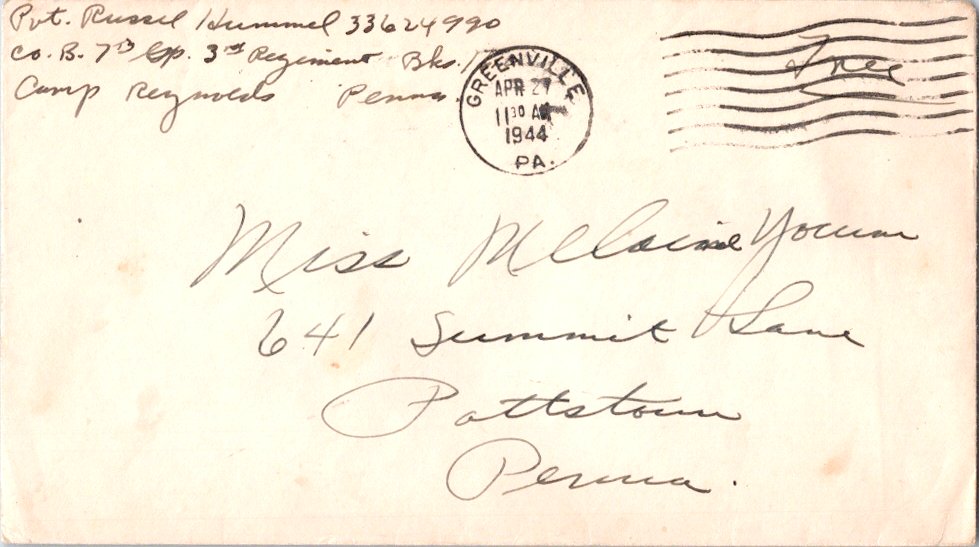 Pvt. Russel Hummel 33624990
Co. B. 7th Gp. 3rd Regiment Bks.
Camp Reynolds Penna
GREENVILLE
APR 27
11 30 AM
1944
PA.
Free
Miss Youm
641 Summit Lane
Pottstown
Penna.